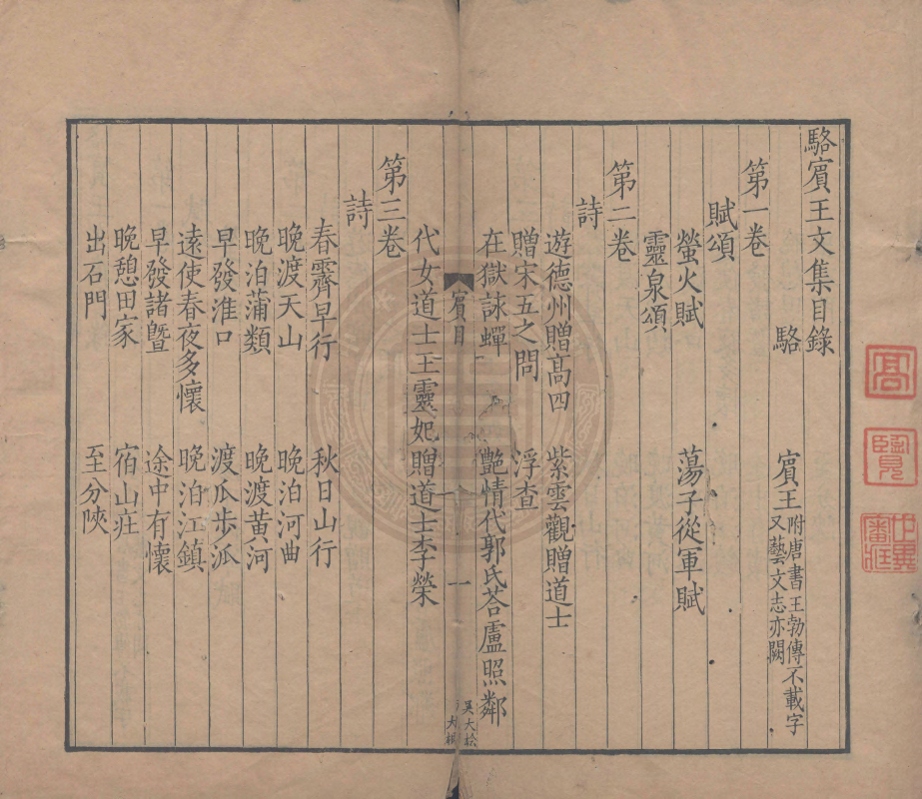 駱賓王文集目錄
駱 賓王 附唐書王勃傳不載字
又藝文志亦闕
第一卷
賦頌
螢火賦 蕩子從軍賦
靈泉頌
第二卷
詩
遊德州贈高四 紫雲觀贈道士
贈宋五之問 浮查
在獄詠蟬 艶情代郭氏荅盧照鄰
賓目 一
吴大
代女道士王靈妃贈道士李榮
第三卷
詩
春霽早行 秋日山行
晚渡天山 晚泊河曲
晚泊蒲類 晚渡黄河
早發淮口 渡瓜步泒
遠使春夜多懷 晚泊江鎮
早發諸暨 途中有懷
晚憩田家 宿山庄
出石門 至分陝